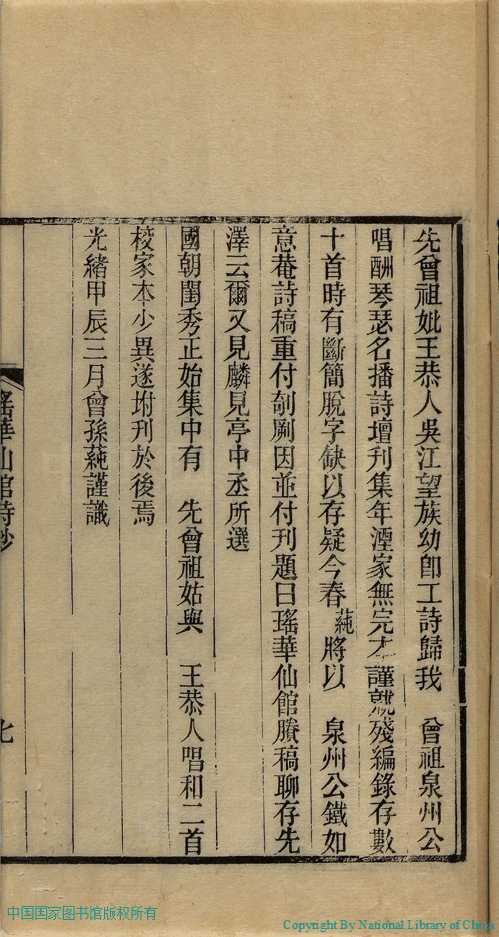 先曾祖妣王恭人吳江望族幼卽工詩歸我　曾祖泉州公
唱酬琴瑟名播詩壇刊集年湮家無完本謹就殘編錄存數
十首時有斷簡脫字缺以存疑今春蒓將以　泉州公鐵如
意菴詩稿重付剞劂因並付刊題曰瑤華仙館賸稿聊存先
澤云爾又見麟見亭中丞所選
國朝閨秀正始集中有　先曾祖姑與　王恭人唱和二首
校家本少異遂坿刊於後焉
光緒甲辰三月曾孫蒓謹識
瑤華仙館詩鈔
七
中国国家图书馆版权所有
Copyright By National Library of China